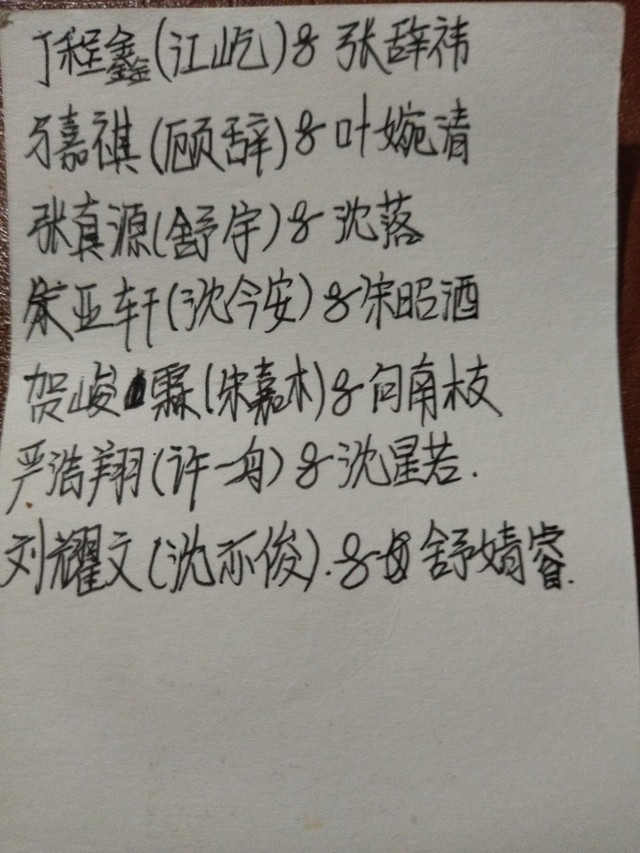 丁程鑫(江屹)&张辞祎
马嘉祺(顾辞)&叶婉清
张真源(舒宇)&沈落
宋亚轩(沈今安)&宋昭酒
贺峻霖(宋嘉木)&向南枝
严浩翔(许一舟)&沈星若.
刘耀文(沈亦俊).&舒婧睿.